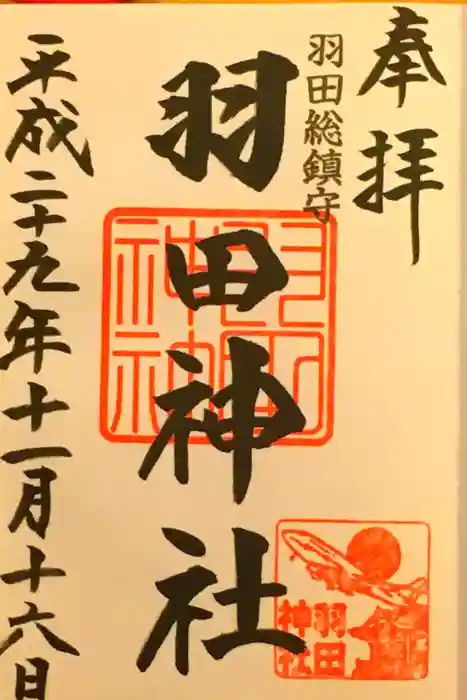 奉拝
羽田総鎮守
羽田神社
平成二十九年十一月十六日
羽田
神社